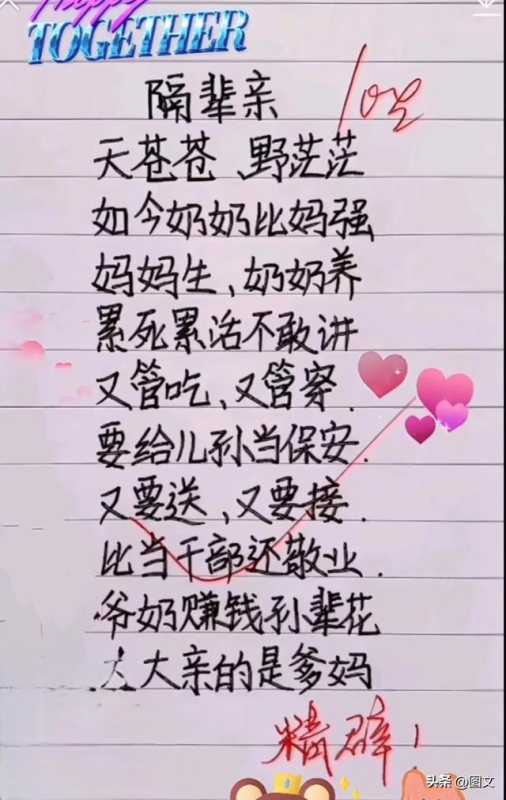 Happy
TOGETHER
隔辈亲
天苍苍、野茫茫
如今奶奶比妈强
妈妈生、奶奶养
累死累活不敢讲
又管吃、又管穿.
要给儿孙当保安.
又要送,又要接.
比当干部还敬业.
爷奶赚钱孙辈花
大亲的是爹妈
精辟!
头条 @图文